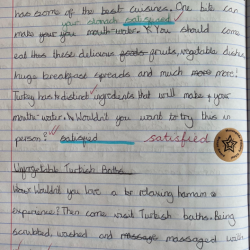 has some of the best cuisines. One bite can
your stomach satisfied
make your you mouth-water. You should come
eat thus these delicious foods fruits, vegetable dishes,
huge breakfast spreads and much more more!
Turkey has to distinct ingredients that will make your
mouth-water. Wouldn't you want to try this in
person? satisfied satisfied
Unforgetable Turkish Baths
Wow! Wouldn't you love a be relaxing hamam
experience! Then come visit Turkish baths. Being
scrubbed, washed and massage massaged will